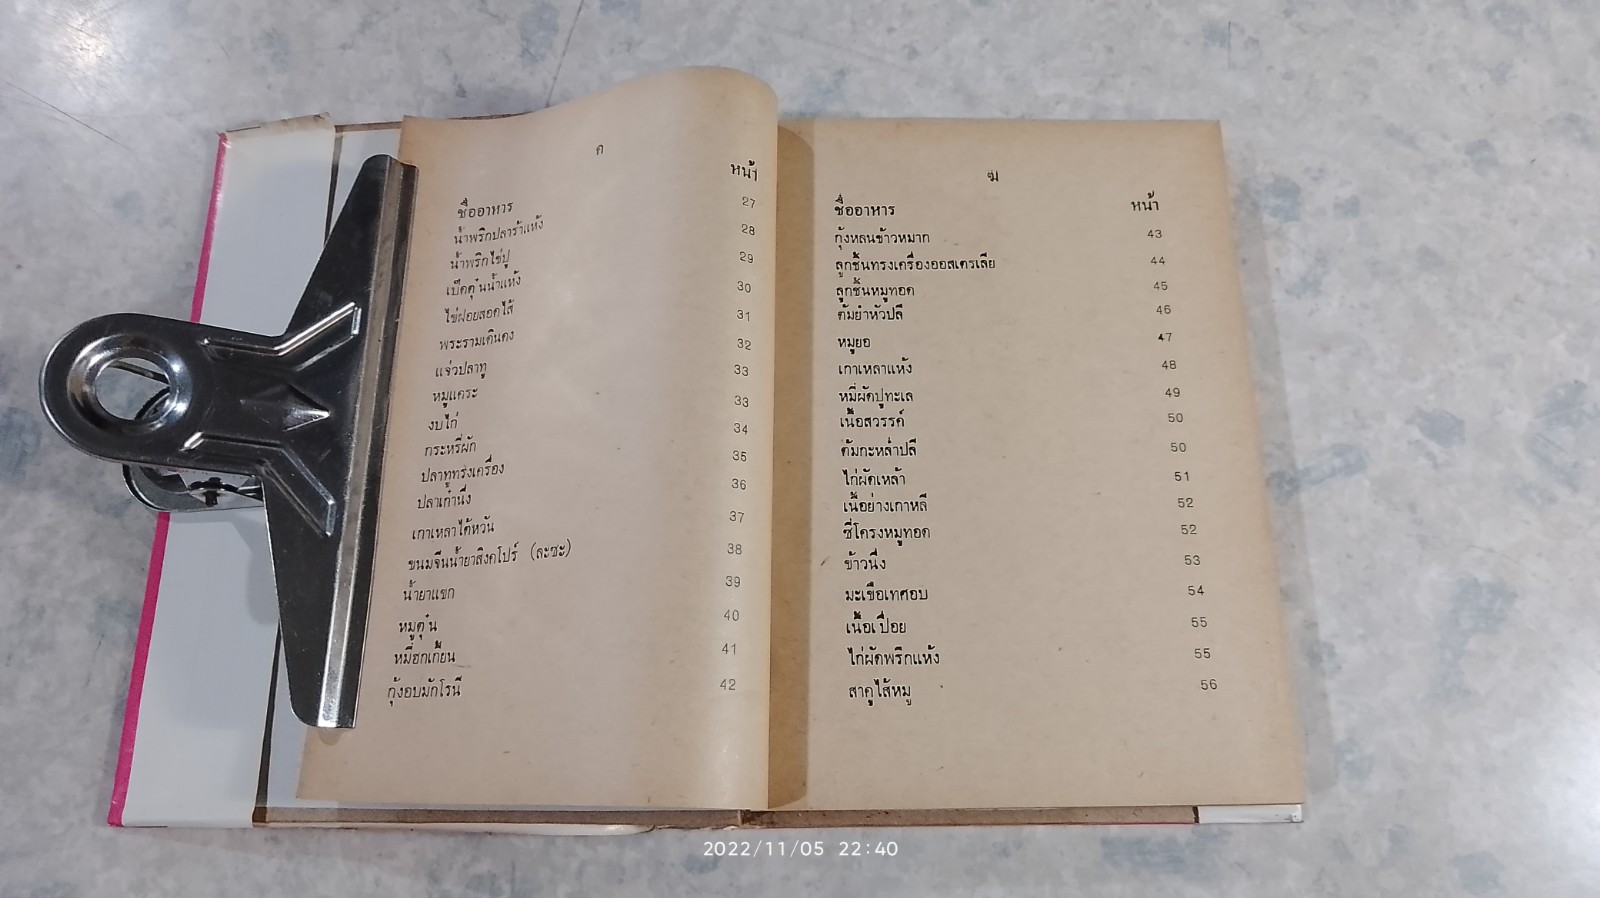 ค
ชื่ออาหาร หน้า
น้ำพริกปลาร้าแห้ง 27
น้ำพริกไข่ปู 28
เป็ดตุ๋นน้ำแห้ง 29
ไข่ฝอยสอดไส้ 30
พระรามเดินดง 31
แจ่วปลาทู 32
หมูแดระ 33
งบไก่ 33
กระหรี่ผัก 34
ปลาทูทรงเครื่อง 35
ปลาเก๋านึ่ง 36
เกาเหลาไต้หวัน 37
ขนมจีนน้ำยาสิงคโปร์ (ละซะ) 38
น้ำยาแขก 39
หมูตุ๋น 40
หมี่ฮกเกี้ยน 41
กุ้งอบมักโรนี 42
ฆ
ชื่ออาหาร หน้า
กุ้งหลนข้าวหมาก 43
ลูกชิ้นทรงเครื่องออสเตรเลีย 44
ลูกชิ้นหมูทอด 45
ต้มยำหัวปลี 46
หมูยอ 47
เกาเหลาแห้ง 48
หมี่ผัดปูทะเล 49
เนื้อสวรรค์ 50
ต้มกะหล่ำปลี 50
ไก่ผัดเหล้า 51
เนื้อย่างเกาหลี 52
ซี่โครงหมูทอด 52
ข้าวนึ่ง 53
มะเขือเทศอบ 54
เนื้อเปื่อย 55
ไก่ผัดพริกแห้ง 55
สาคูไส้หมู 56
2022/11/05 22:40